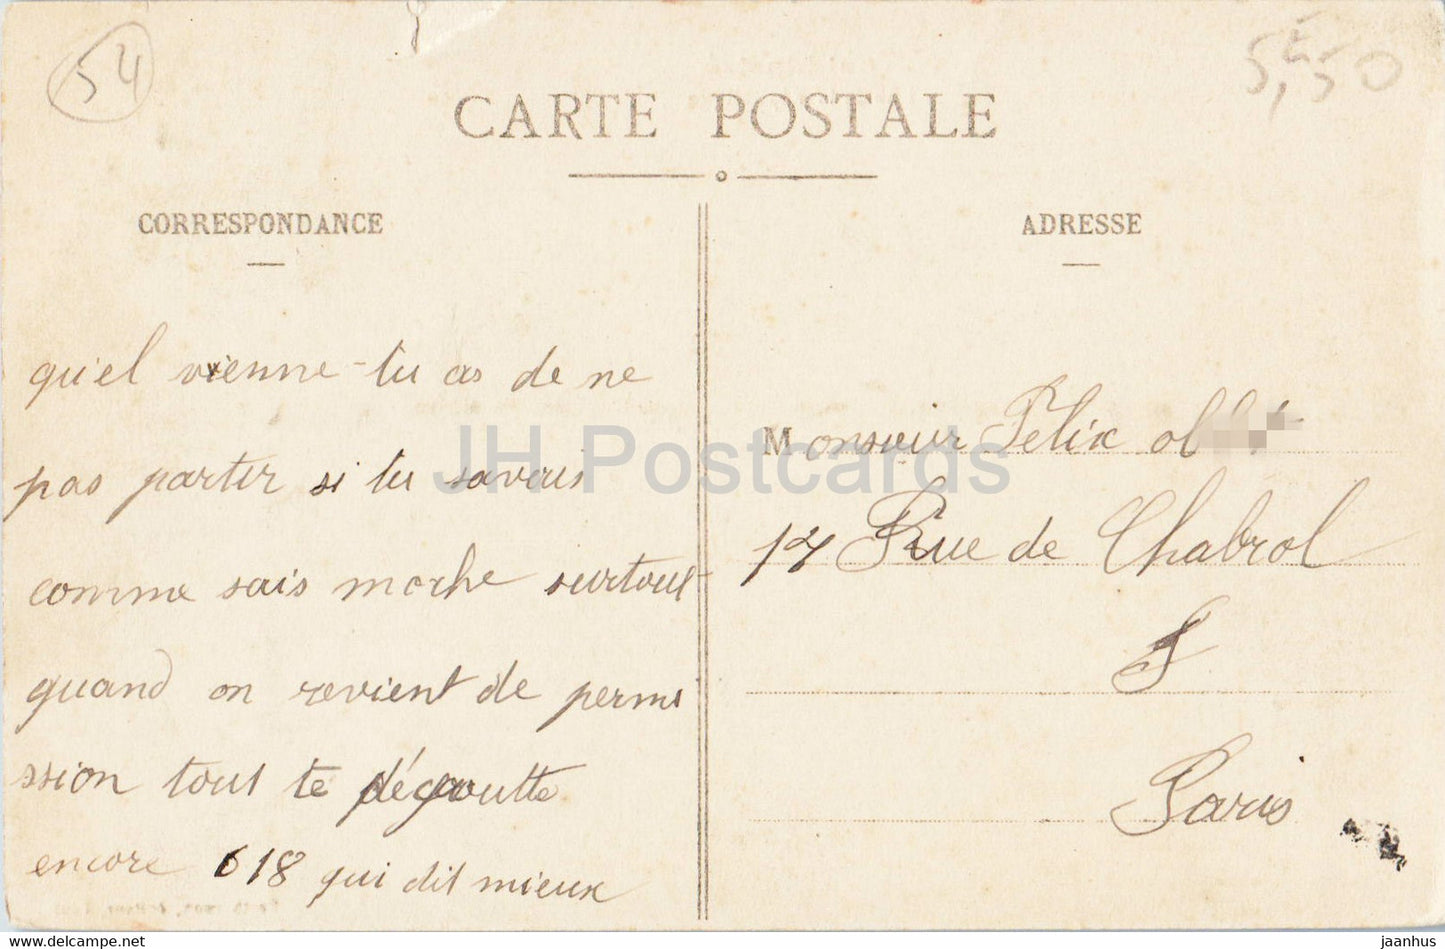 54
5,50
CARTE POSTALE
CORRESPONDANCE
qu'el vienne-tu as de ne
pas partir si tu savais
comme sais moche surtout
quand on revient de permi
ssion tout te dégoutte
encore 618 qui dit mieux
ADRESSE
Monsieur Felix
17 Rue de Chabrol
Paris
JH Postcards
jaanhus